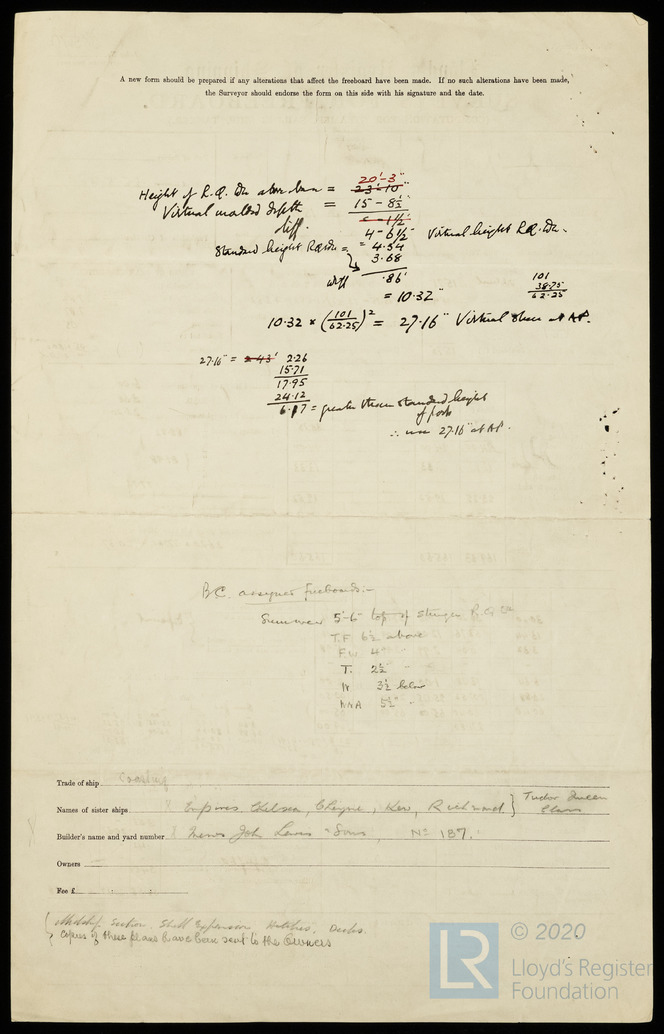 A new form should be prepared if any alterations that affect the freeboard have been made. If no such alterations have been made,
the Surveyor should endorse the form on this side with his signature and the date.
20'-3"
Height of R.Q. Dk above base = 23'-10"
Virtual molded depth = 15 - 8½
5 - 1½
diff. 4 - 6½" Virtual height R.Q. Dk.
Standard height RQ Dk = = 4.54
3.68
diff .86'
= 10.32"
101
38.75
62.25
10.32 × (101/62.25)² = 27.16" Virtual Sheer at AP.
27.16" = 2.43' 2.26
15.71
17.95
24.12
6.17 = greater than standard height
of poop
∴ use 27.16" at AP.
B.C. assigned freeboards:-
Summer 5'-6" top of Stringer R.Q. Dk
T.F. 6½ above
F.W. 4" "
T. 2½ "
W 3½ below
WNA 5½ "
Trade of ship Coasting
Names of sister ships Empires Chelsea, Cheyne, Kew, Richmond } Tudor Queen
Builder's name and yard number Messrs John Lewis & Sons, No 187.
Owners
Fee £ : :
Midship Section, Shell Expansion, Hatches, Decks.
Copies of these plans have been sent to the Owners
LR
© 2020
Lloyd's Register
Foundation